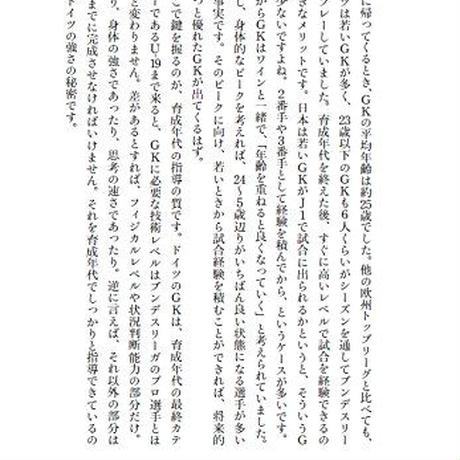 に帰ってくるとき、GKの平均年齢は約25歳でした。他の欧州トップリーグと比べても、
ツは若いGKが多く、23歳以下のGKも6人くらいがシーズンを通してブンデスリー
プレーしていました。育成年代を終えた後、すぐに高いレベルで試合を経験できるの
きなメリットです。日本は若いGKがJ1で試合に出られるかというと、そういうG
少ないですよね。2番手や3番手として経験を積んでから、というケースが多いです。
からGKはワインと一緒で、「年齢を重ねると良くなっていく」と考えられていました。
し、身体的なピークを考えれば、24〜5歳辺りがいちばん良い状態になる選手が多い
事実です。そのピークに向け、若いときから試合経験を積むことができれば、将来的
っと優れたGKが出てくるはず。
こで鍵を握るのが、育成年代の指導の質です。ドイツのGKは、育成年代の最終カテ
ーであるU-19まで来ると、GKに必要な技術レベルはブンデスリーガのプロ選手とほ
と変わりません。差があるとすれば、フィジカルレベルや状況判断能力の部分だけ。
り、身体の強さであったり、思考の速さであったり。逆に言えば、それ以外の部分は
までに完成させなければいけません。それを育成年代でしっかりと指導できているの
ドイツの強さの秘密です。